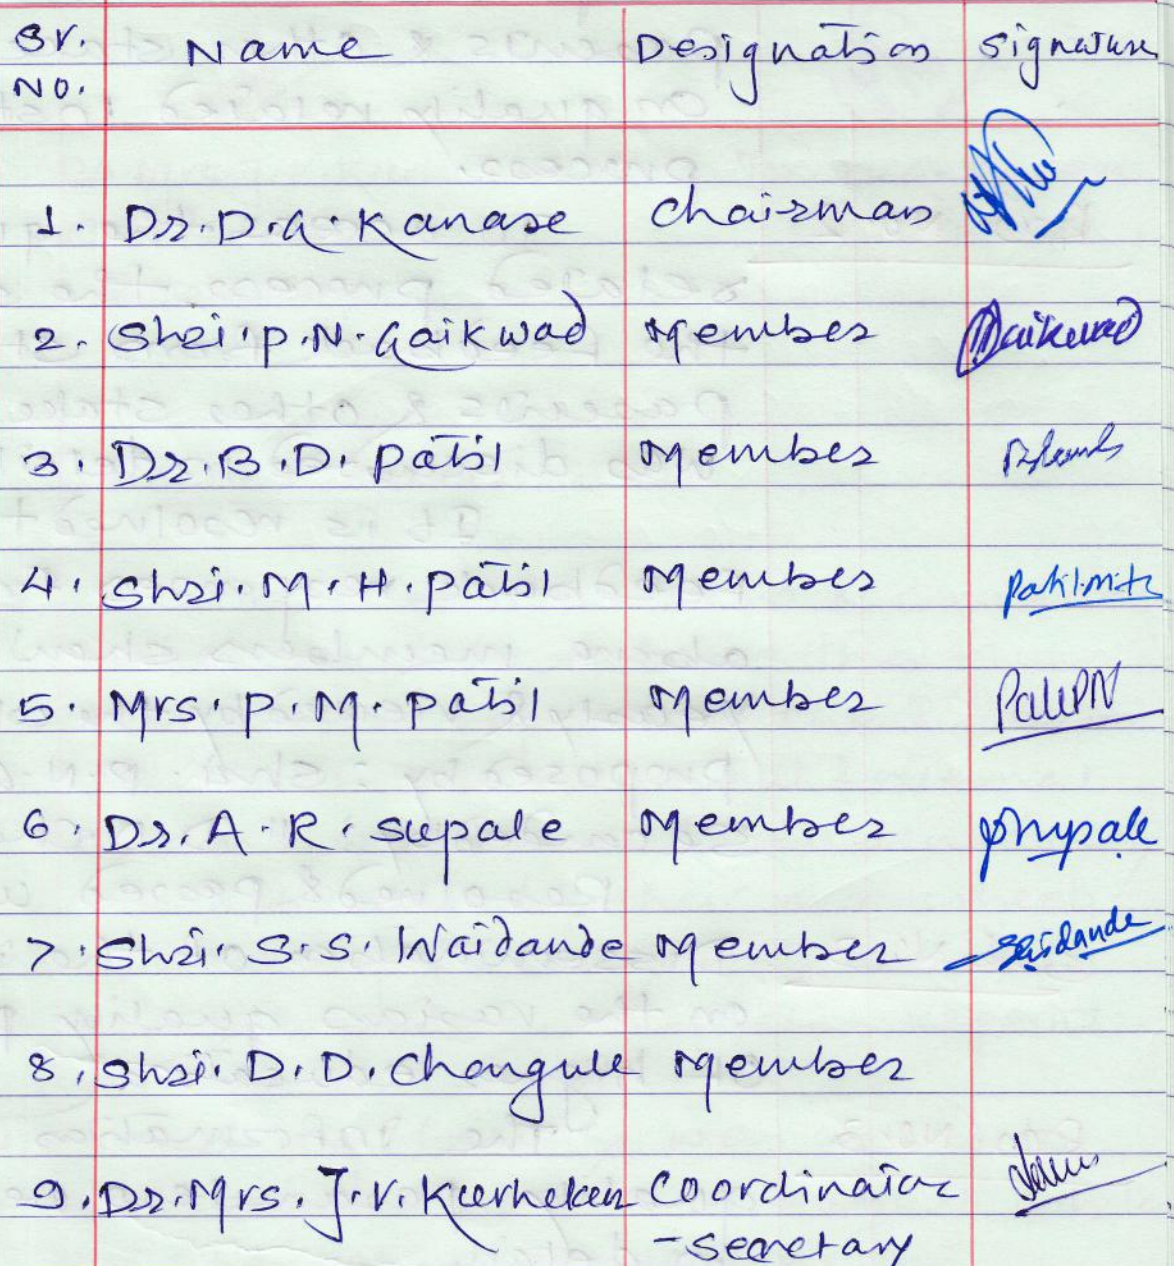 Sr. Name Designation Signature
No.
1. Dr. D. G. Kanase Chairman
2. Shri. P. N. Gaikwad Member Gaikwad
3. Dr. B. D. Patil Member
4. Shri. M. H. Patil Member
5. Mrs. P. M. Patil Member
6. Dr. A. R. Supale Member
7. Shri. S. S. Waidande Member
8. Shri. D. D. Chougule Member
9. Dr. Mrs. J. V. Coordinator
- Secretary